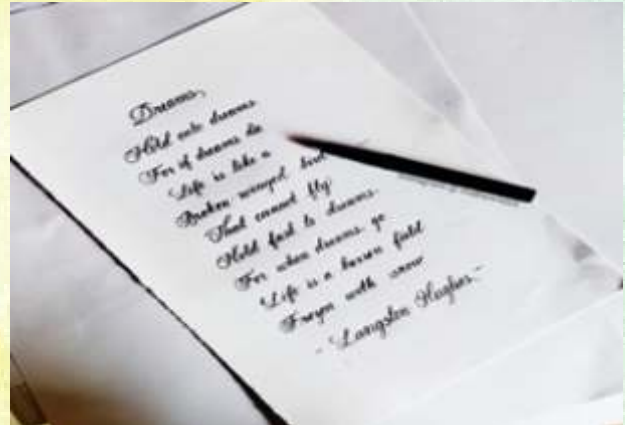 Dreams,
Hold onto dreams
For if dreams die
Life is like a
Broken winged bird
That cannot fly
Hold fast to dreams.
For when dreams go
Life is a barren field
Frozen with snow
- Langston Hughes -